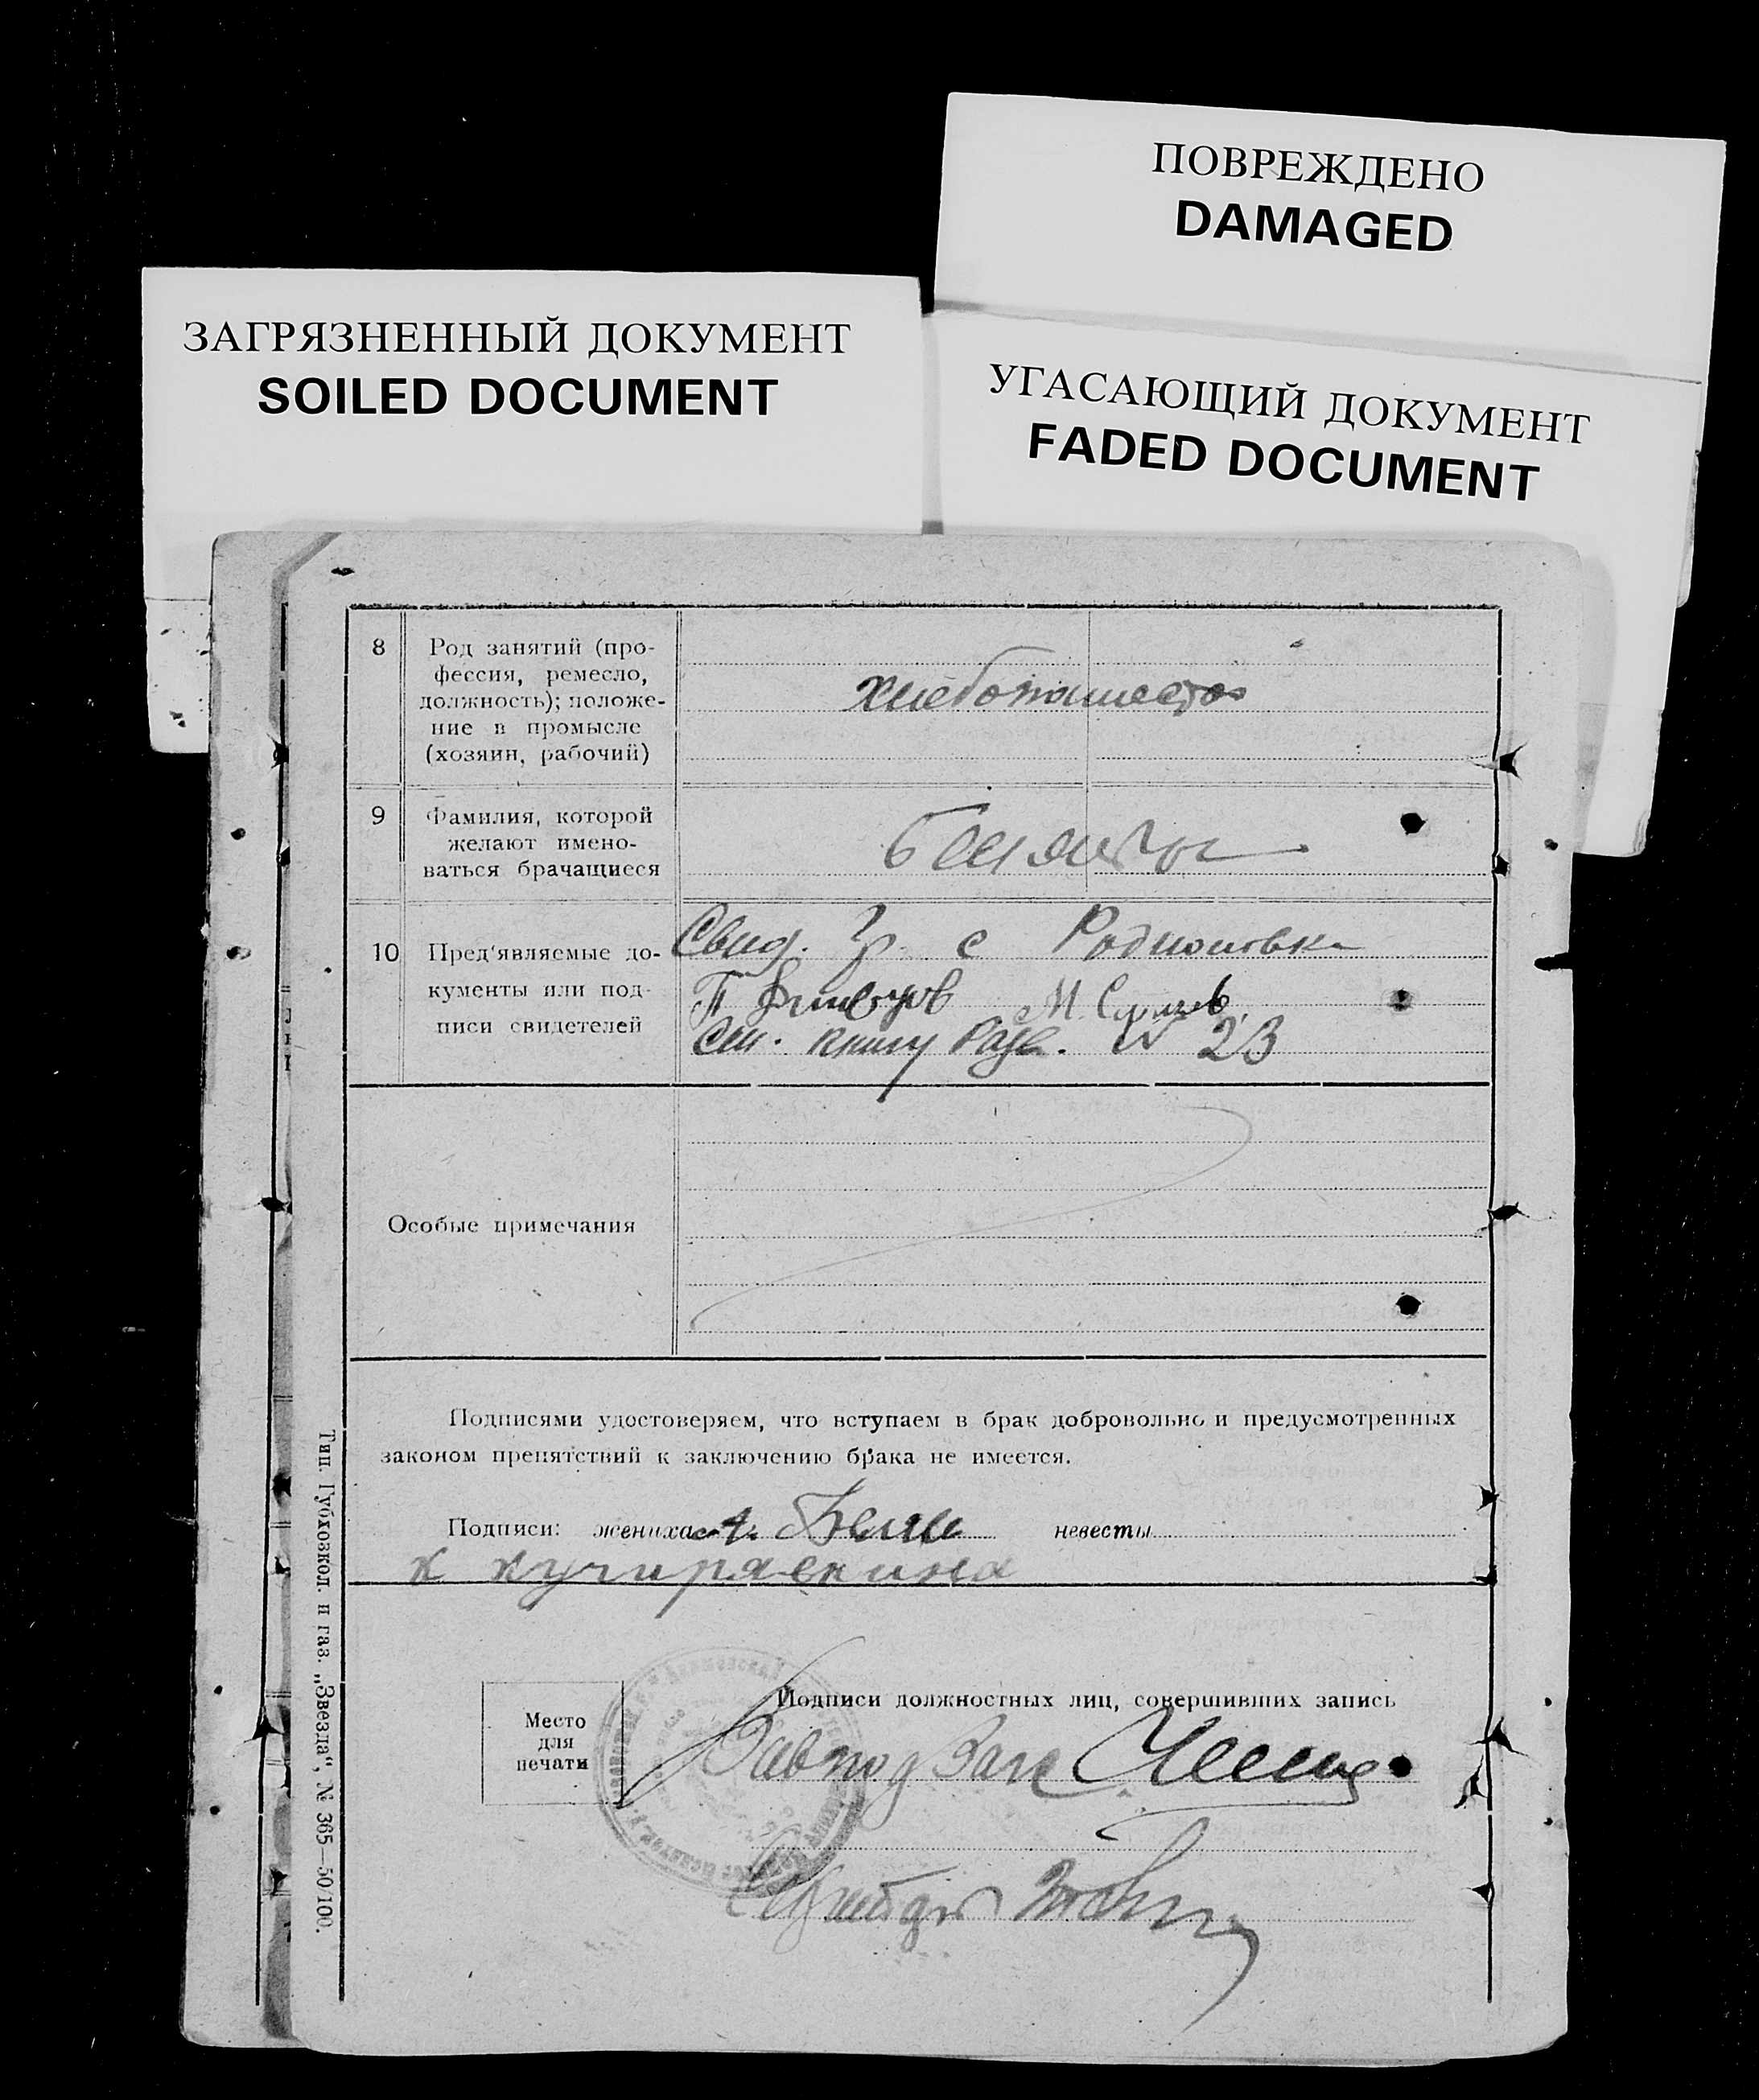 ПОВРЕЖДЕНО
DAMAGED
ЗАГРЯЗНЕННЫЙ ДОКУМЕНТ
SOILED DOCUMENT
УГАСАЮЩИЙ ДОКУМЕНТ
FADED DOCUMENT
8
Род занятий (про-
фессия, ремесло,
должность); положе-
ние в промысле
(хозяин, рабочий)
хлебопашество
9
Фамилия, которой
желают имено-
ваться брачащиеся
10
Пред'являемые до-
кументы или под-
писи свидетелей
Свид. с Родионовка
П М
См. книгу Разв. № 23
Особые примечания
Подписями удостоверяем, что вступаем в брак добровольно и предусмотренных
законом препятствий к заключению брака не имеется.
Подписи: жениха невесты
к
Место
для
печати
Подписи должностных лиц, совершивших запись
Завпод Заг
Тип. Губхозкол. и газ. „Звезда“, № 365—50/100.